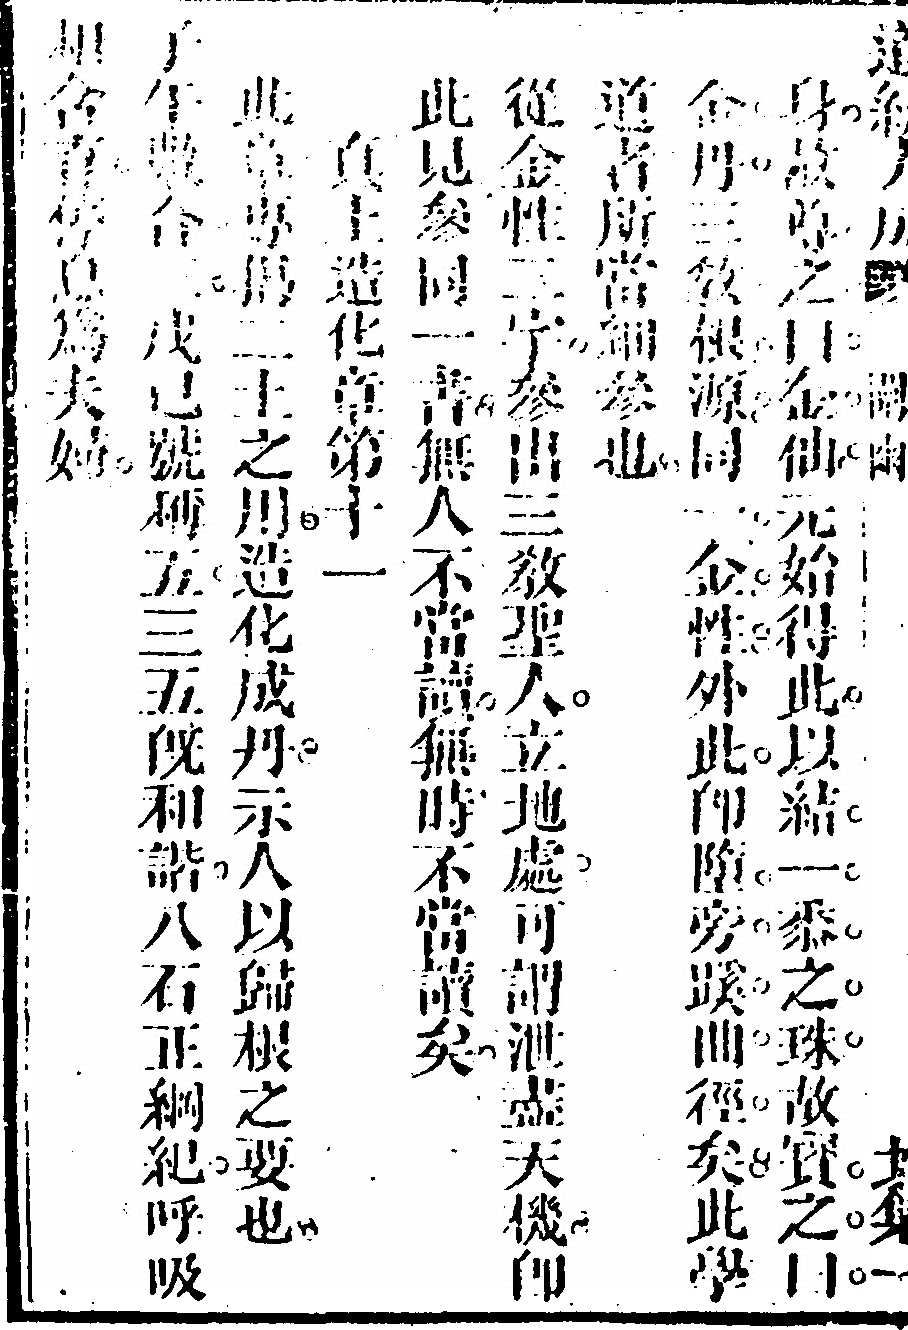 身故尊之曰金仙元始得此以結一黍之珠故寶之曰
金丹三教根源同一金性外此卽墮旁蹊曲徑矣此學
道者所當細參也
從金性二字參出三教聖人立地處可謂泄盡天機卽
此見參同一書無人不當讀無時不當讀矣
眞土造化章第十一
此章專言二土之用造化成丹示人以歸根之要也
子午數合三戊己號稱五三五旣和諧八石正綱紀呼吸
相含育佇息爲夫婦